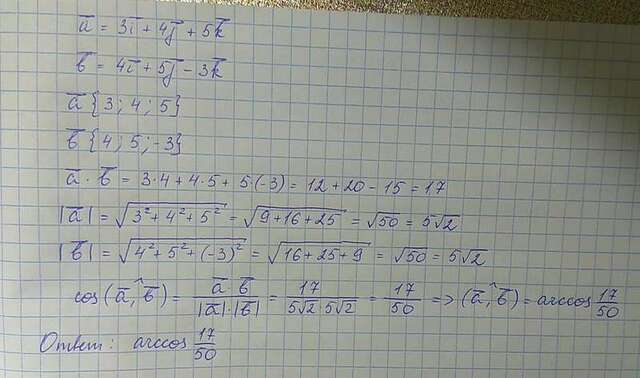 a̅ = 3i̅ + 4j̅ + 5k̅
b̅ = 4i̅ + 5j̅ - 3k̅
a̅ {3; 4; 5}
b̅ {4; 5; -3}
a̅ · b̅ = 3·4 + 4·5 + 5(-3) = 12 + 20 - 15 = 17
|a̅| = √(3² + 4² + 5²) = √(9 + 16 + 25) = √50 = 5√2
|b̅| = √(4² + 5² + (-3)²) = √(16 + 25 + 9) = √50 = 5√2
cos(a̅,^b̅) = a̅·b̅ / |a̅|·|b̅| = 17 / 5√2·5√2 = 17/50 => (a̅,^b̅) = arccos 17/50
Ответ: arccos 17/50